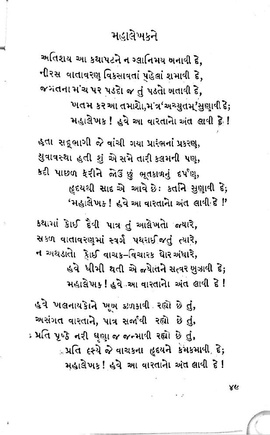 મહાલેખકને
અતિશય આ કથાપટને ન ગ્લાનિમય બનાવી દે,
નીરસ વાતાવરણ વિકસાવતાં પહેલાં શમાવી દે,
જગતના મંચ પર પડદો જ તું પડતો બતાવી દે,
ખતમ કર આ તમાશો, મંત્ર ‘અચ્યુતમ્’ સુણાવી દે;
મહાલેખક ! હવે આ વારતાનો અંત લાવી દે !
હતા સદ્ભાગી જે વાંચી ગયા પ્રારંભનાં પ્રકરણ,
યુવાવસ્થા હતી શું એ સમે તારી કલમની પણ,
કદી પાછળ ફરીને જોઉં છું ભૂતકાળનું દર્પણ,
હૃદયથી સાદ એ આવે છેઃ કર્તાને સુણાવી દે;
મહાલેખક ! હવે આ વારતાનો અંત લાવી દે !”
કથામાં કોઈ દૈવી પાત્ર તું આલેખતો જ્યારે,
સકળ વાતાવરણમાં સ્વર્ગ પથરાઈ જતું ત્યારે,
ન અથડાતો કોઈ વાચક-વિચારક ઘોર અંધારે,
હવે ધીમી થતી એ જ્યોતને સત્વર બુઝાવી દે;
મહાલેખક ! હવે આ વારતાનો અંત લાવી દે !
હવે ખલનાયકોને ખૂબ ઝળકાવી રહ્યો છે તું,
અસંગત વારતાને, પાત્ર સર્જાવી રહ્યો છે તું,
પ્રતિ પૃષ્ઠે નરી ઘૃણા જ જન્માવી રહ્યો છે તું,
પ્રતિ દૃશ્યે જે વાચકના હૃદયને કમકમાવી દે;
મહાલેખક ! હવે આ વારતાનો અંત લાવી દે !
૪૯